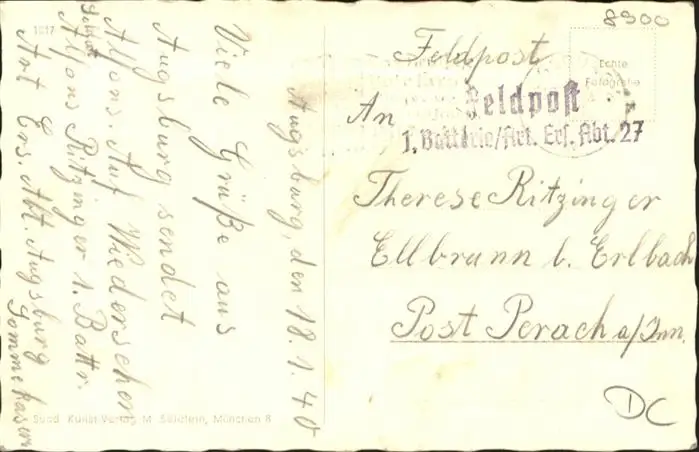 8900
Feldpost
Echte
Fotografie
Feldpost
An
1. Battrie/Art. Ers. Abt. 27
Therese Ritzinger
Ellbrunn b. Erlbach
Post Perach a/Inn.
DC
1017
Augsburg, den 18.1.40
Viele Grüße aus
Augsburg sendet
Alfons. Auf Wiedersehen
Alfons Ritzinger 1. Battr.
Art Ers. Abt. Augsburg
Sommekasern
Südd. Kunst-Verlag M. München 8